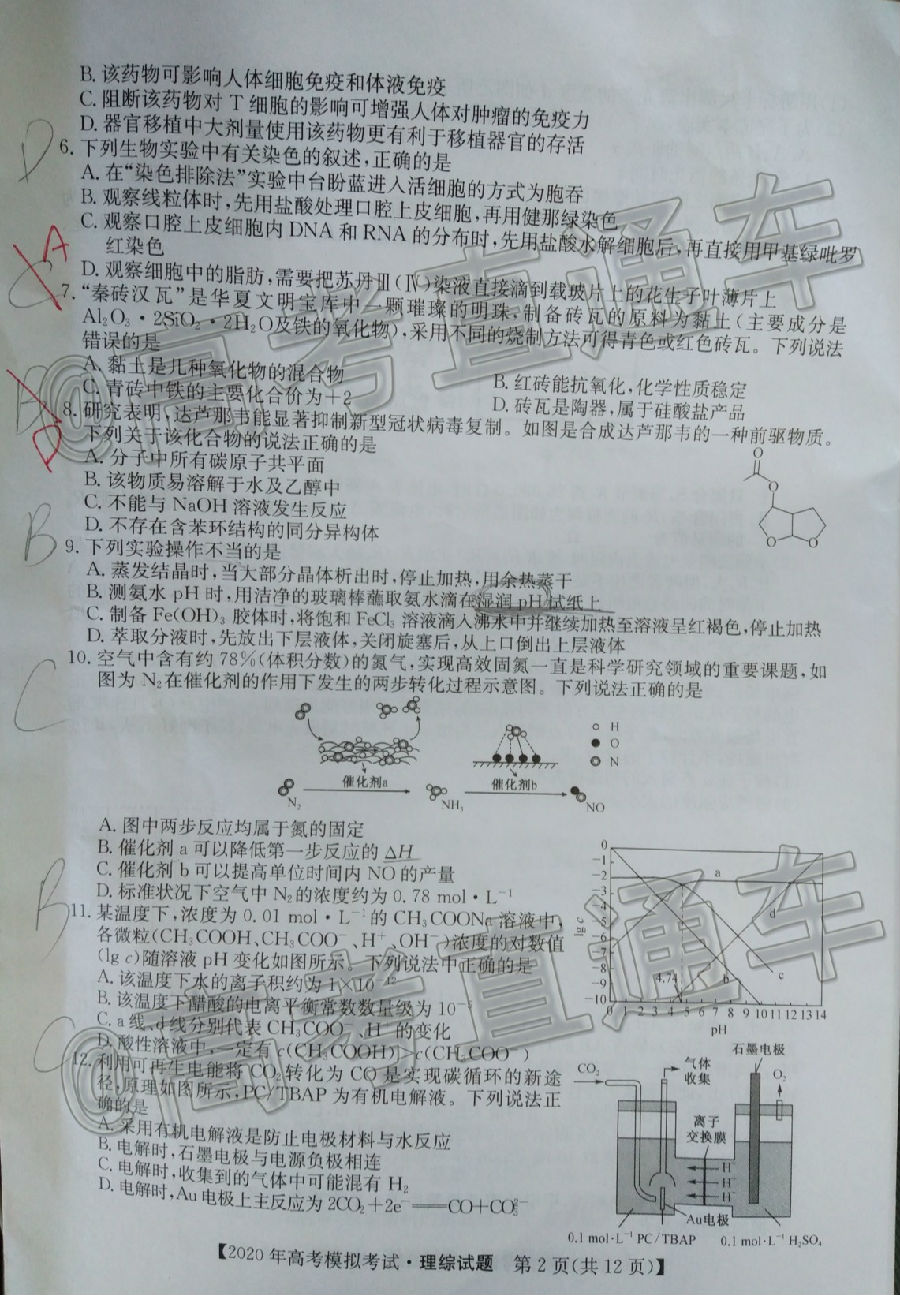 B. 该药物可影响人体细胞免疫和体液免疫
C. 阻断该药物对 T 细胞的影响可增强人体对肿瘤的免疫力
D. 器官移植中大剂量使用该药物更有利于移植器官的存活
D
6. 下列生物实验中有关染色的叙述,正确的是
A. 在“染色排除法”实验中台盼蓝进入活细胞的方式为胞吞
B. 观察线粒体时,先用盐酸处理口腔上皮细胞,再用健那绿染色
C. 观察口腔上皮细胞内 DNA 和 RNA 的分布时,先用盐酸水解细胞后,再直接用甲基绿吡罗
红染色
D. 观察细胞中的脂肪,需要把苏丹Ⅲ(Ⅳ)染液直接滴到载玻片上的花生子叶薄片上
A
7. “秦砖汉瓦”是华夏文明宝库中一颗璀璨的明珠,制备砖瓦的原料为黏土(主要成分是
Al₂O₃・2SiO₂・2H₂O及铁的氧化物),采用不同的烧制方法可得青色或红色砖瓦。下列说法
错误的是
A. 黏土是几种氧化物的混合物 B. 红砖能抗氧化,化学性质稳定
C. 青砖中铁的主要化合价为+2 D. 砖瓦是陶器,属于硅酸盐产品
D
8. 研究表明,达芦那韦能显著抑制新型冠状病毒复制。如图是合成达芦那韦的一种前驱物质。
下列关于该化合物的说法正确的是
A. 分子中所有碳原子共平面
B. 该物质易溶解于水及乙醇中
C. 不能与 NaOH 溶液发生反应
D. 不存在含苯环结构的同分异构体
O
O
O O
B
9. 下列实验操作不当的是
A. 蒸发结晶时,当大部分晶体析出时,停止加热,用余热蒸干
B. 测氨水 pH 时,用洁净的玻璃棒蘸取氨水滴在湿润 pH 试纸上
C. 制备 Fe(OH)₃ 胶体时,将饱和 FeCl₃ 溶液滴入沸水中并继续加热至溶液呈红褐色,停止加热
D. 萃取分液时,先放出下层液体,关闭旋塞后,从上口倒出上层液体
C
10. 空气中含有约 78%(体积分数)的氮气,实现高效固氮一直是科学研究领域的重要课题,如
图为 N₂在催化剂的作用下发生的两步转化过程示意图。下列说法正确的是
H
O
N
催化剂a 催化剂b
N₂ NH₃ NO
A. 图中两步反应均属于氮的固定
B. 催化剂 a 可以降低第一步反应的 ΔH
C. 催化剂 b 可以提高单位时间内 NO 的产量
D. 标准状况下空气中 N₂的浓度约为 0.78 mol・L⁻¹
B
11. 某温度下,浓度为 0.01 mol・L⁻¹的 CH₃COONa 溶液中,
各微粒(CH₃COOH、CH₃COO⁻、H⁺、OH⁻)浓度的对数值
(lg c)随溶液 pH 变化如图所示。下列说法中正确的是
A. 该温度下水的离子积约为 1×10⁻¹²
B. 该温度下醋酸的电离平衡常数数量级为 10⁻⁵
C. a 线、d 线分别代表 CH₃COO⁻、H⁺的变化
D. 酸性溶液中,一定有 c(CH₃COOH)>c(CH₃COO⁻)
0
-1
-2
-3
-4
-5
-6
-7
-8
-9
-10
lg c
a
d
c
4.74
0 1 2 3 4 5 6 7 8 9 10 11 12 13 14
pH
C
12. 利用可再生电能将 CO₂转化为 CO 是实现碳循环的新途
径,原理如图所示,PC/TBAP 为有机电解液。下列说法正
确的是
A. 采用有机电解液是防止电极材料与水反应
B. 电解时,石墨电极与电源负极相连
C. 电解时,收集到的气体中可能混有 H₂
D. 电解时,Au 电极上主反应为 2CO₂+2e⁻══CO+CO₃²⁻
石墨电极
CO₂
气体
收集
O₂
离子
交换膜
H⁺
H⁺
H⁺
Au电极
0.1 mol・L⁻¹ PC/TBAP 0.1 mol・L⁻¹ H₂SO₄
【2020 年高考模拟考试・理综试题 第 2 页(共 12 页)】
@高考直通车
@高考直通车